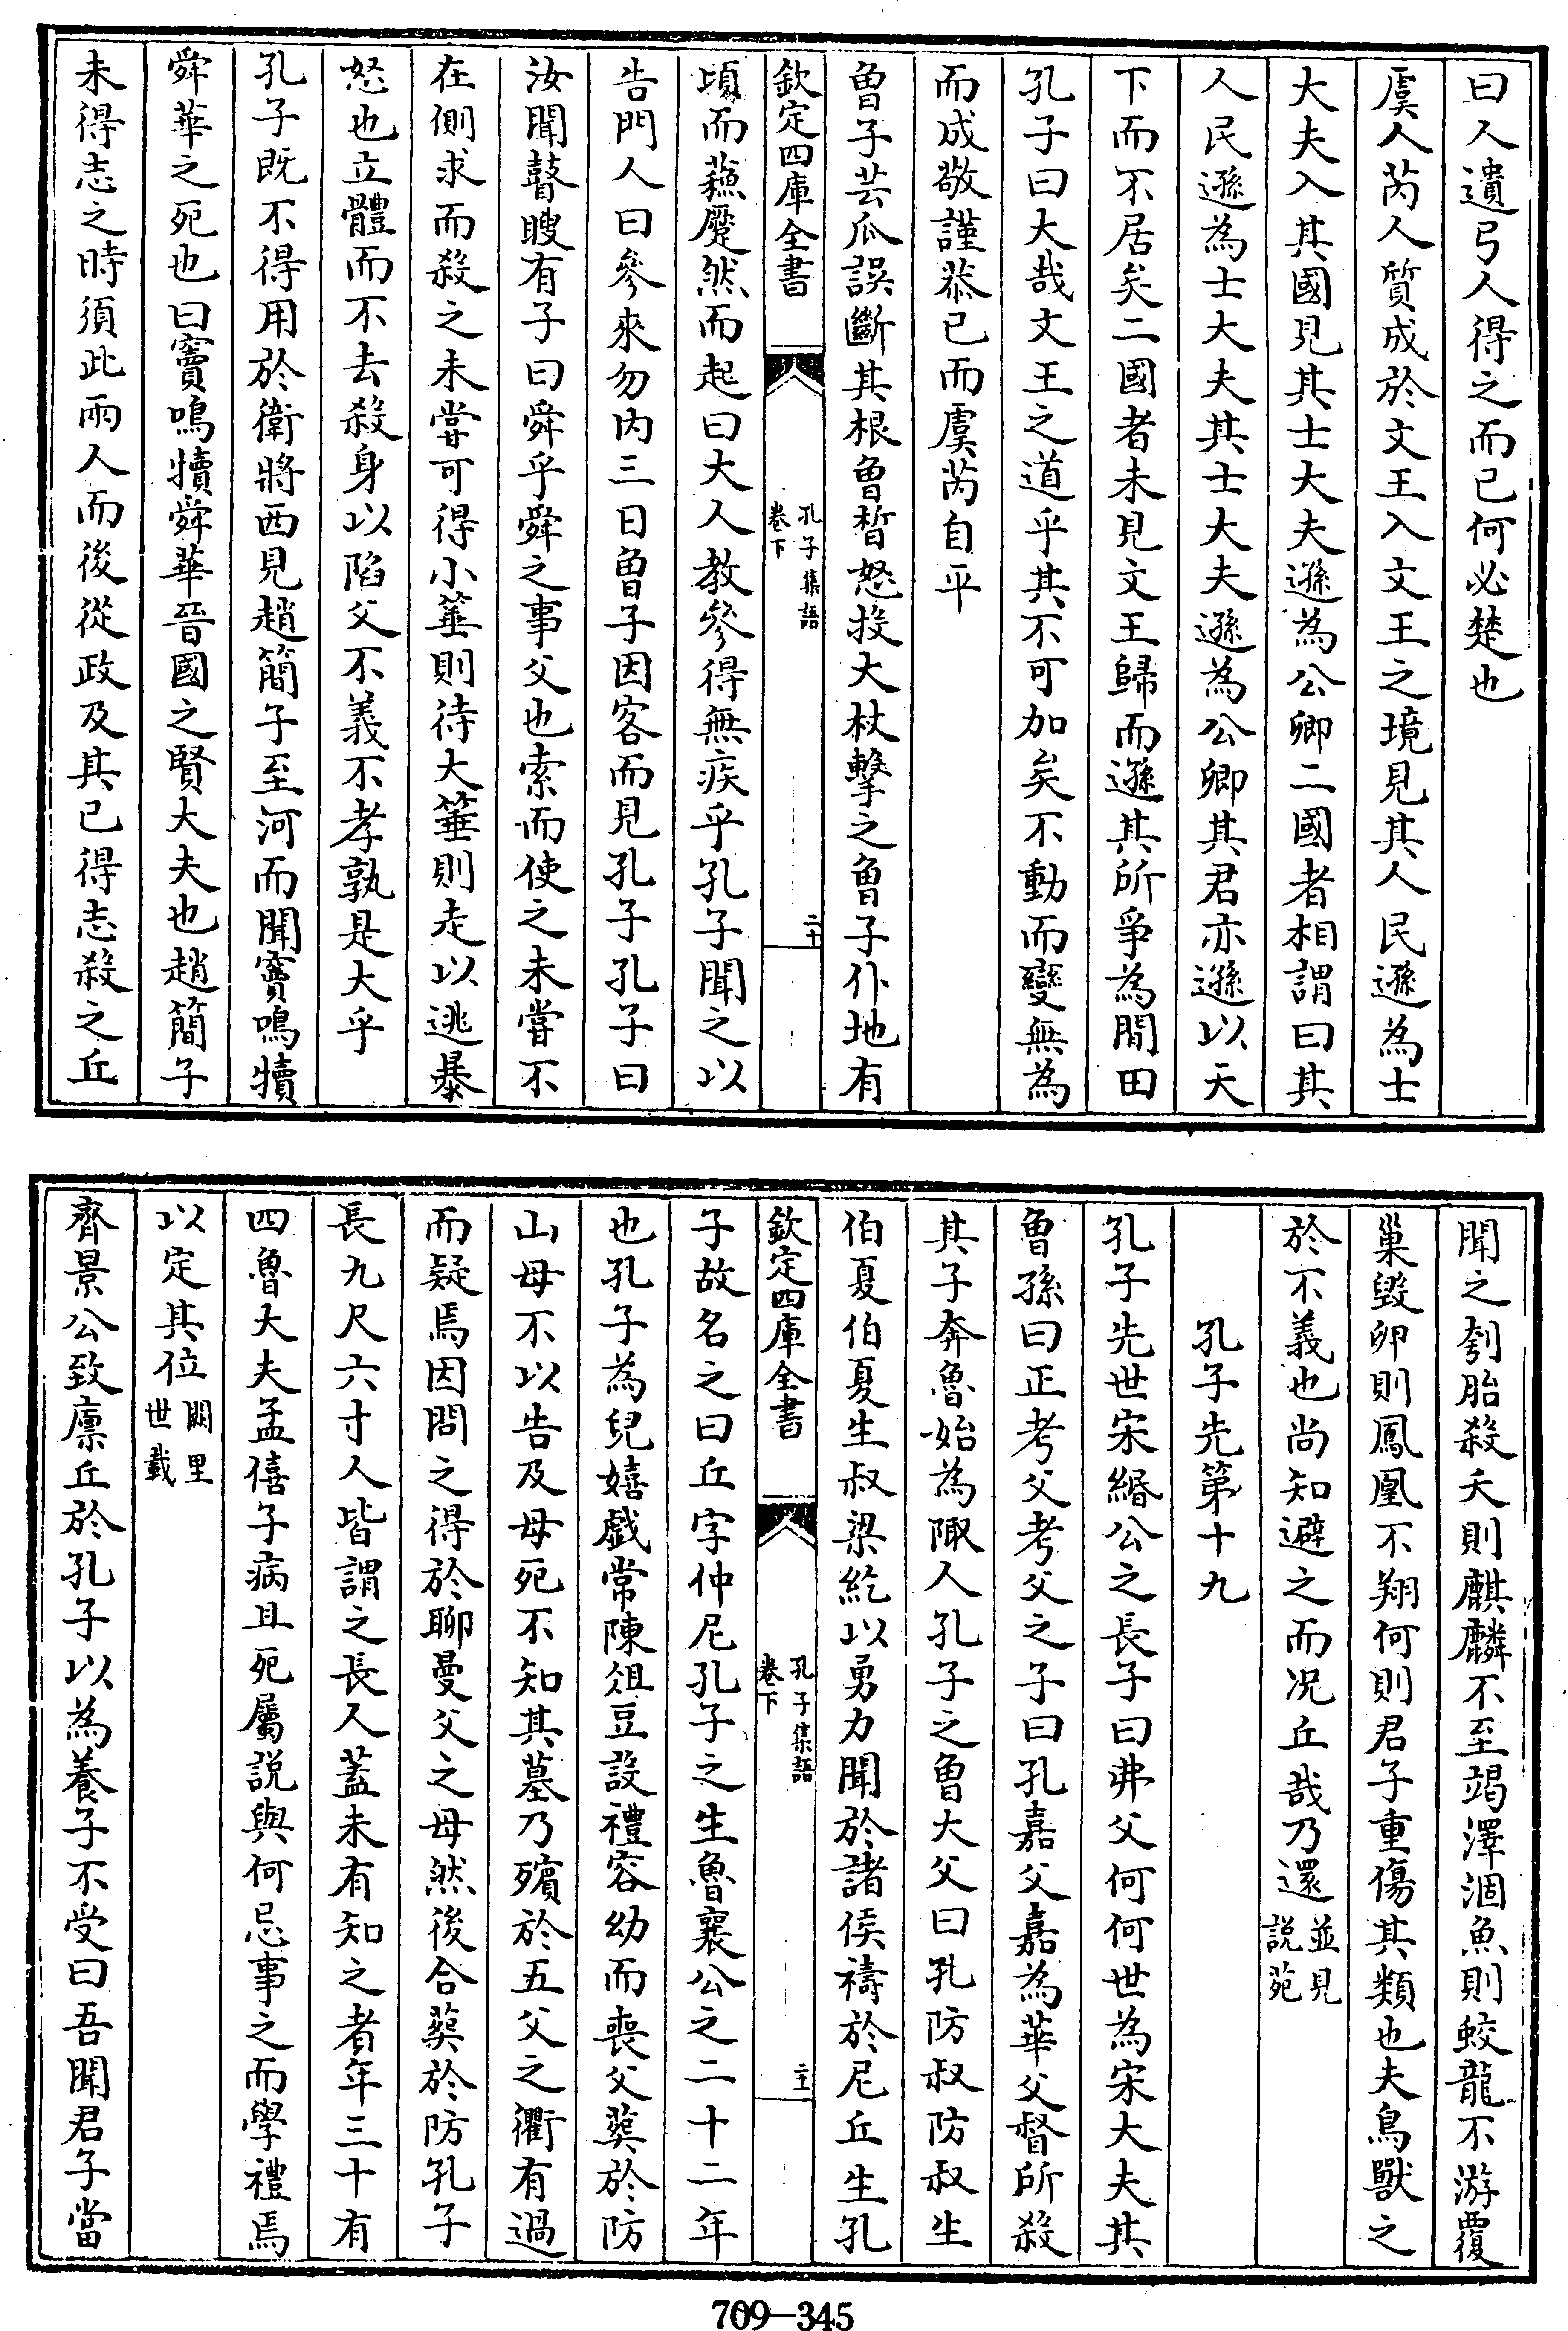 曰人遺弓人得之而已何必楚也
虞人芮人質成於文王入文王之境見其人民遜為士
大夫入其國見其士大夫遜為公卿二國者相謂曰其
人民遜為士大夫其士大夫遜為公卿其君亦遜以天
下而不居矣二國者未見文王歸而遜其所爭為閒田
孔子曰大哉文王之道乎其不可加矣不動而變無為
而成敬謹恭已而虞芮自平
曾子芸瓜誤斷其根曾晳怒投大杖擊之曾子仆地有
欽定四庫全書
孔子集語
卷下
二十
頃而蘓蹷然而起曰大人教參得無疾乎孔子聞之以
告門人曰參來勿内三日曾子因客而見孔子孔子曰
汝聞瞽瞍有子曰舜乎舜之事父也索而使之未嘗不
在側求而殺之未嘗可得小箠則待大箠則走以逃暴
怒也立體而不去殺身以陷父不義不孝孰是大乎
孔子既不得用於衛將西見趙簡子至河而聞竇鳴犢
舜華之死也曰竇鳴犢舜華晉國之賢大夫也趙簡子
未得志之時須此兩人而後從政及其已得志殺之丘
聞之刳胎殺夭則麒麟不至竭澤涸魚則蛟龍不游覆
巢毀卵則鳳凰不翔何則君子重傷其類也夫鳥獸之
於不義也尚知避之而况丘哉乃還並見說苑
孔子先第十九
孔子先世宋緡公之長子曰弗父何何世為宋大夫其
曾孫曰正考父考父之子曰孔嘉父嘉為華父督所殺
其子奔魯始為陬人孔子之曾大父曰孔防叔防叔生
伯夏伯夏生叔梁紇以勇力聞於諸侯禱於尼丘生孔
欽定四庫全書
孔子集語
卷下
二十一
子故名之曰丘字仲尼孔子之生魯襄公之二十二年
也孔子為兒嬉戲常陳俎豆設禮容幼而喪父葬於防
山母不以告及母死不知其墓乃殯於五父之衢有過
而疑焉因問之得於聊曼父之母然後合葬於防孔子
長九尺六寸人皆謂之長人蓋未有知之者年三十有
四魯大夫孟僖子病且死屬說與何忌事之而學禮焉
以定其位闕里世載
齊景公致廪丘於孔子以為養子不受曰吾聞君子當
709—345